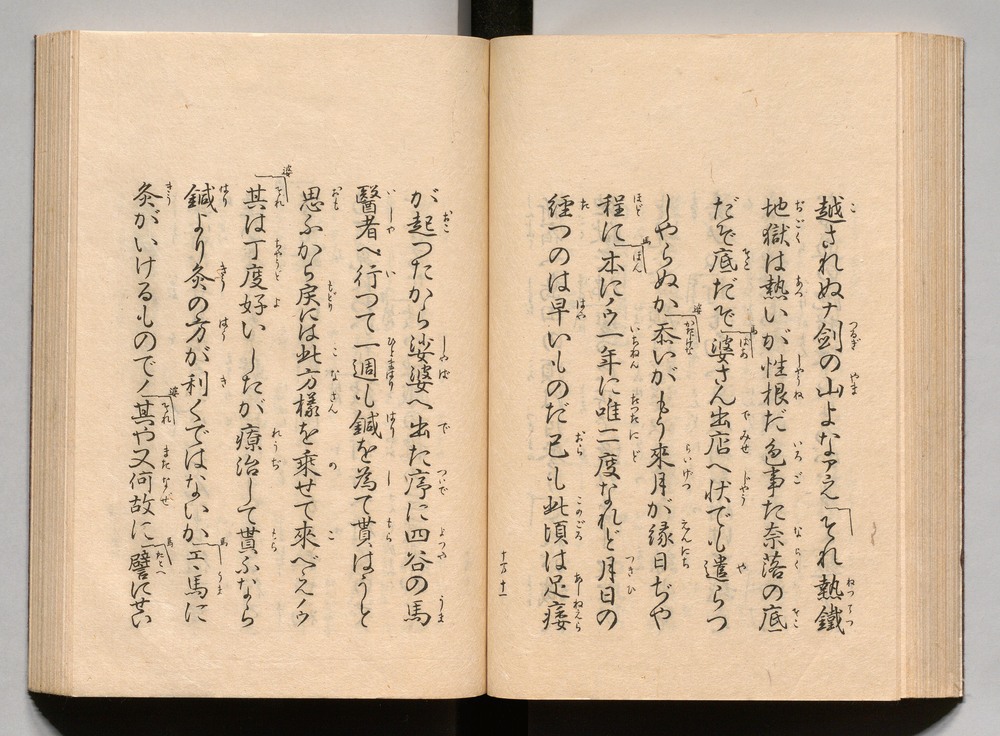 越されぬナ剣の山よなアえそれ熱鐵
地獄は熱いが性根だ色事た奈落の底
だぞ底だぞ婆さん出店へ状でも遣らつ
しやらぬか忝いがもう来月が縁日ぢや
程に本にノウ一年に唯二度なれど月日の
經つのは早いものだ己も此頃は足痿
が起つたから娑婆へ出た序に四谷の馬
醫者へ行つて一週も鍼を為て貰はうと
思ふから戻には此方様を乗せて來べえノウ
其は丁度好いしたが療治して貰ふなら
鍼より灸の方が利くではないかエヽ馬に
灸がいけるものでノ其や又何故に譬にせい